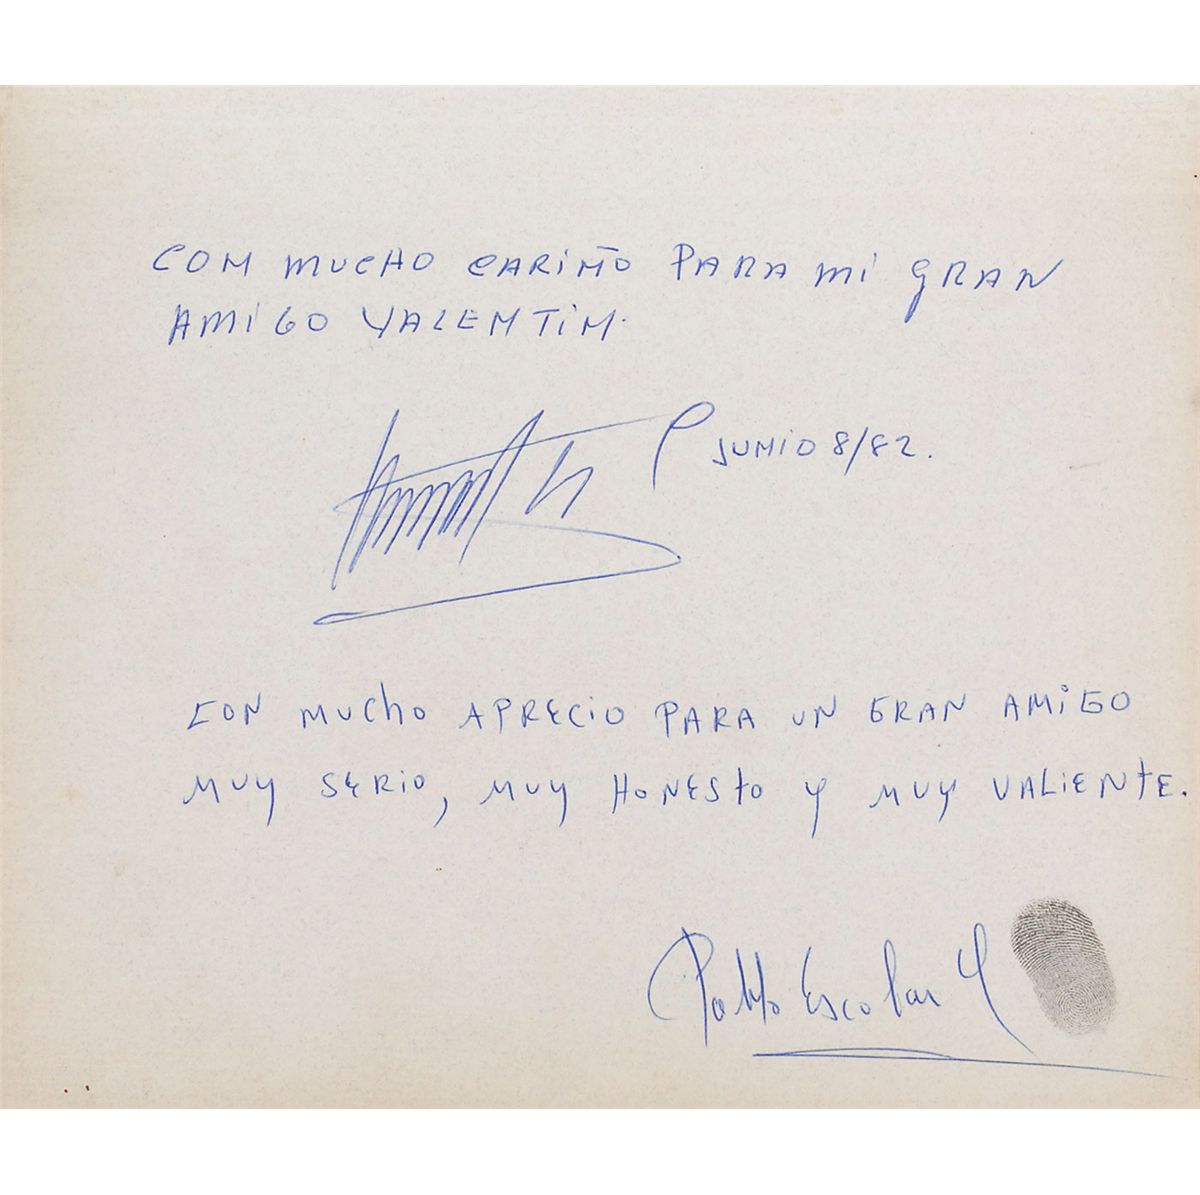 CON MUCHO CARIÑO PARA MI GRAN
AMIGO VALENTIN.
JUNIO 8/82.
CON MUCHO APRECIO PARA UN GRAN AMIGO
MUY SERIO, MUY HONESTO Y MUY VALIENTE.
Pablo Escobar G